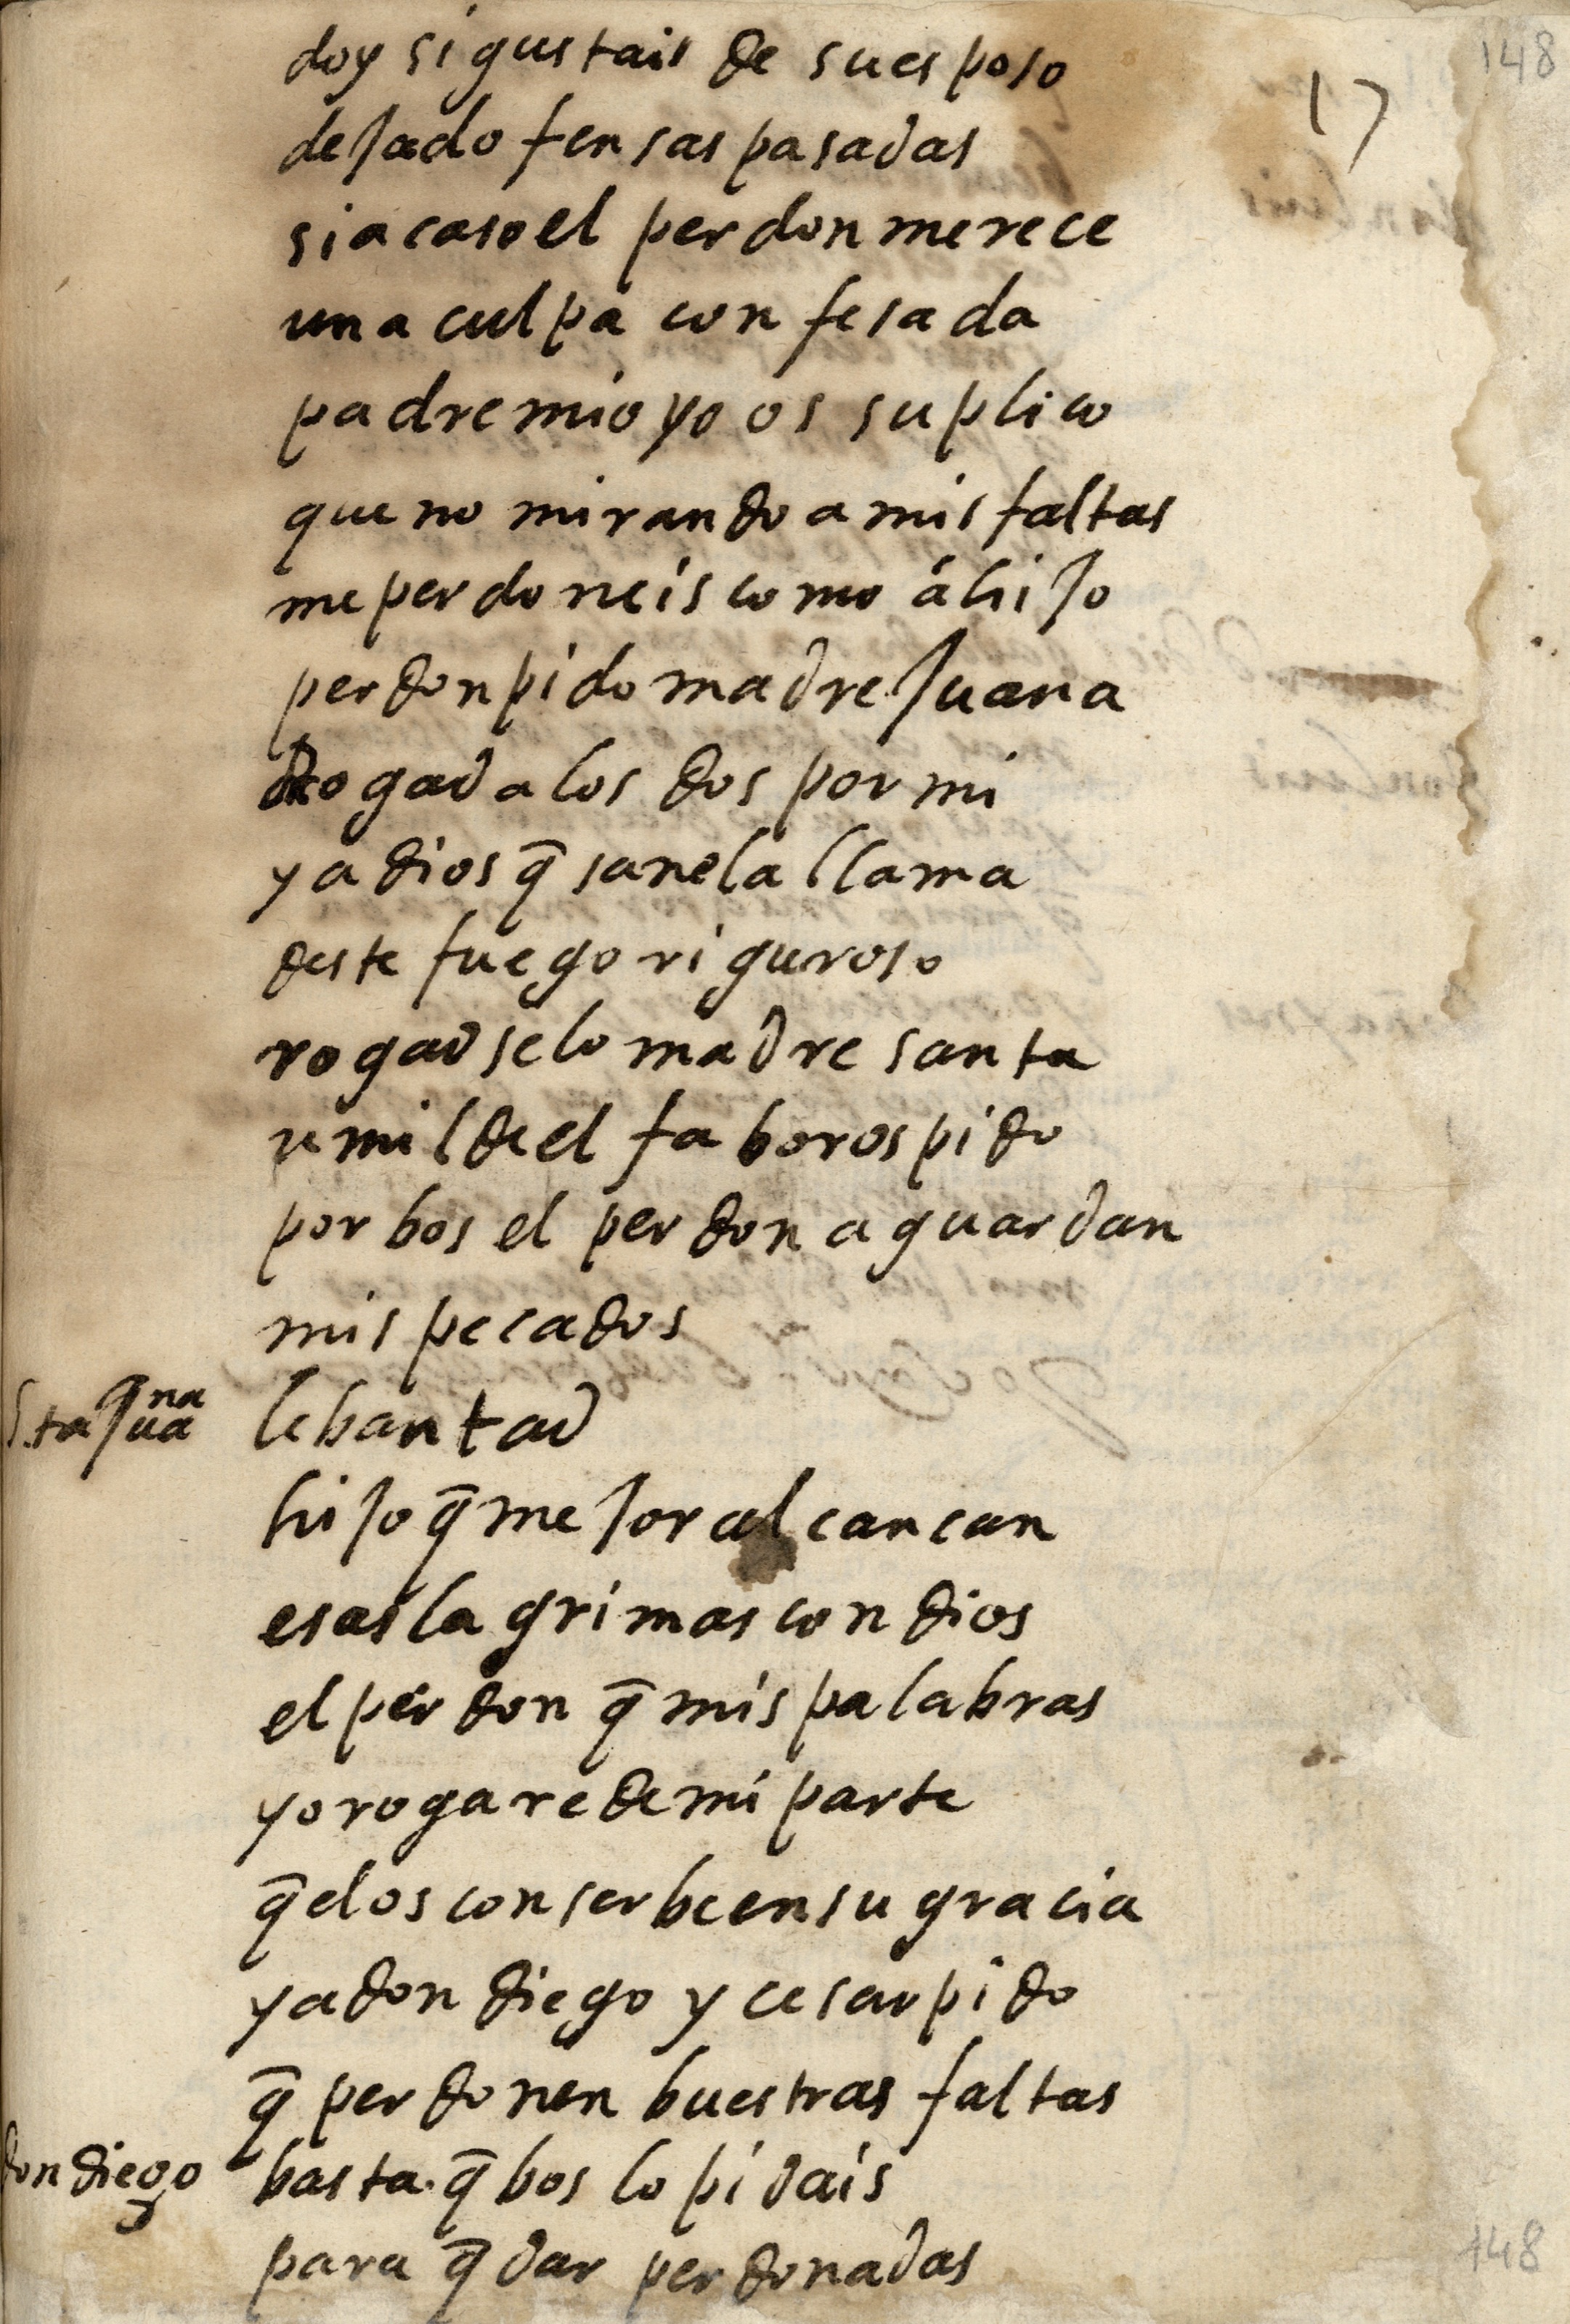 148
17
doy si gustais de su esposo
dejad ofensas pasadas
si acaso el perdon merece
una culpa confesada
padre mio yo os suplico
que no mirando a mis faltas
me perdoneis como á hijo
perdon pido madre Juana
Rogad a los dos por mi
y a dios q̄ sane la llama
deste fuego riguroso
rogadselo madre santa
umilde el fabor os pido
por bos el perdon aguardan
mis pecados
S.ta Juana lebantad
hijo q̄ mejor alcancan
esas lagrimas con dios
el perdon q̄ mis palabras
yo rogare de mi parte
q̄ el os conserbe en su gracia
y a don diego y cesar pido
q̄ perdonen buestras faltas
don diego basta q̄ bos lo pidais
para q̄dar perdonadas
148